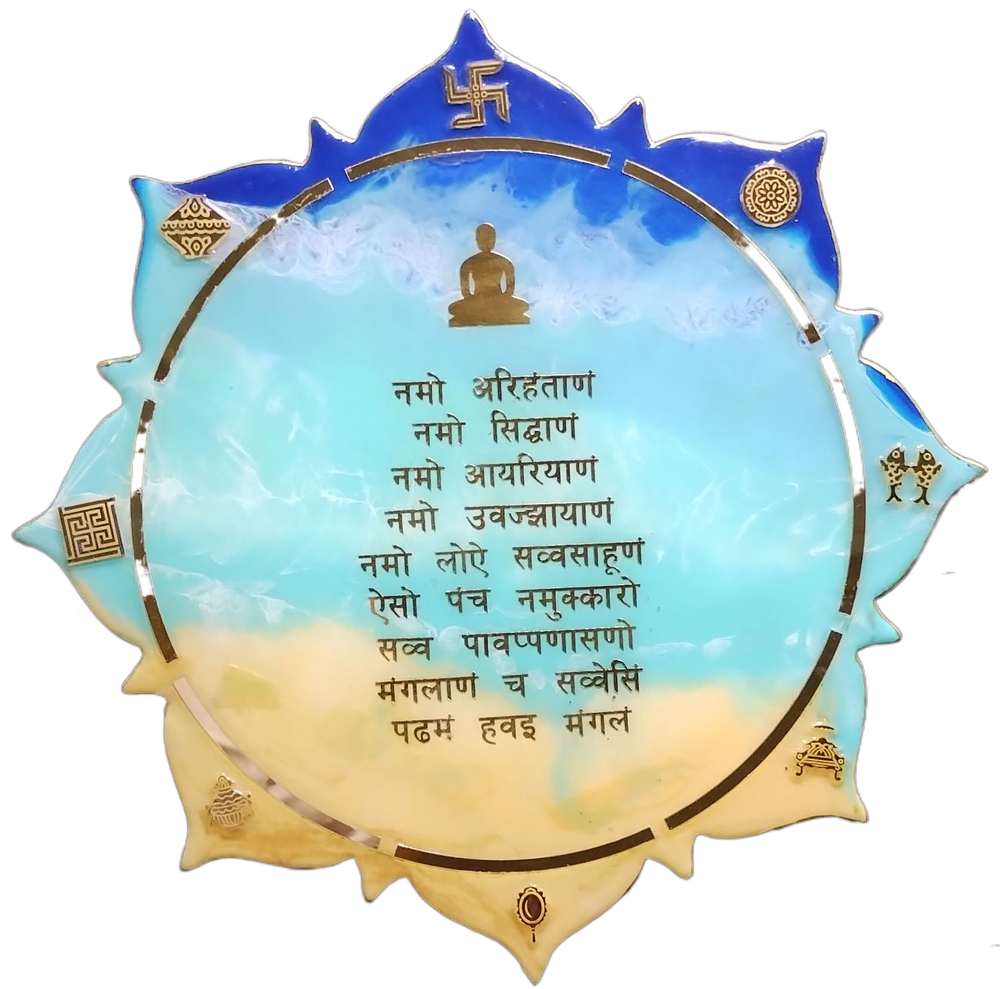 नमो अरिहंताणं
नमो सिद्धाणं
नमो आयरियाणं
नमो उवज्झायाणं
नमो लोऐ सव्वसाहूणं
ऐसो पंच नमुक्कारो
सव्व पावप्पणासणो
मंगलाणं च सव्वेसिं
पढमं हवइ मंगलं